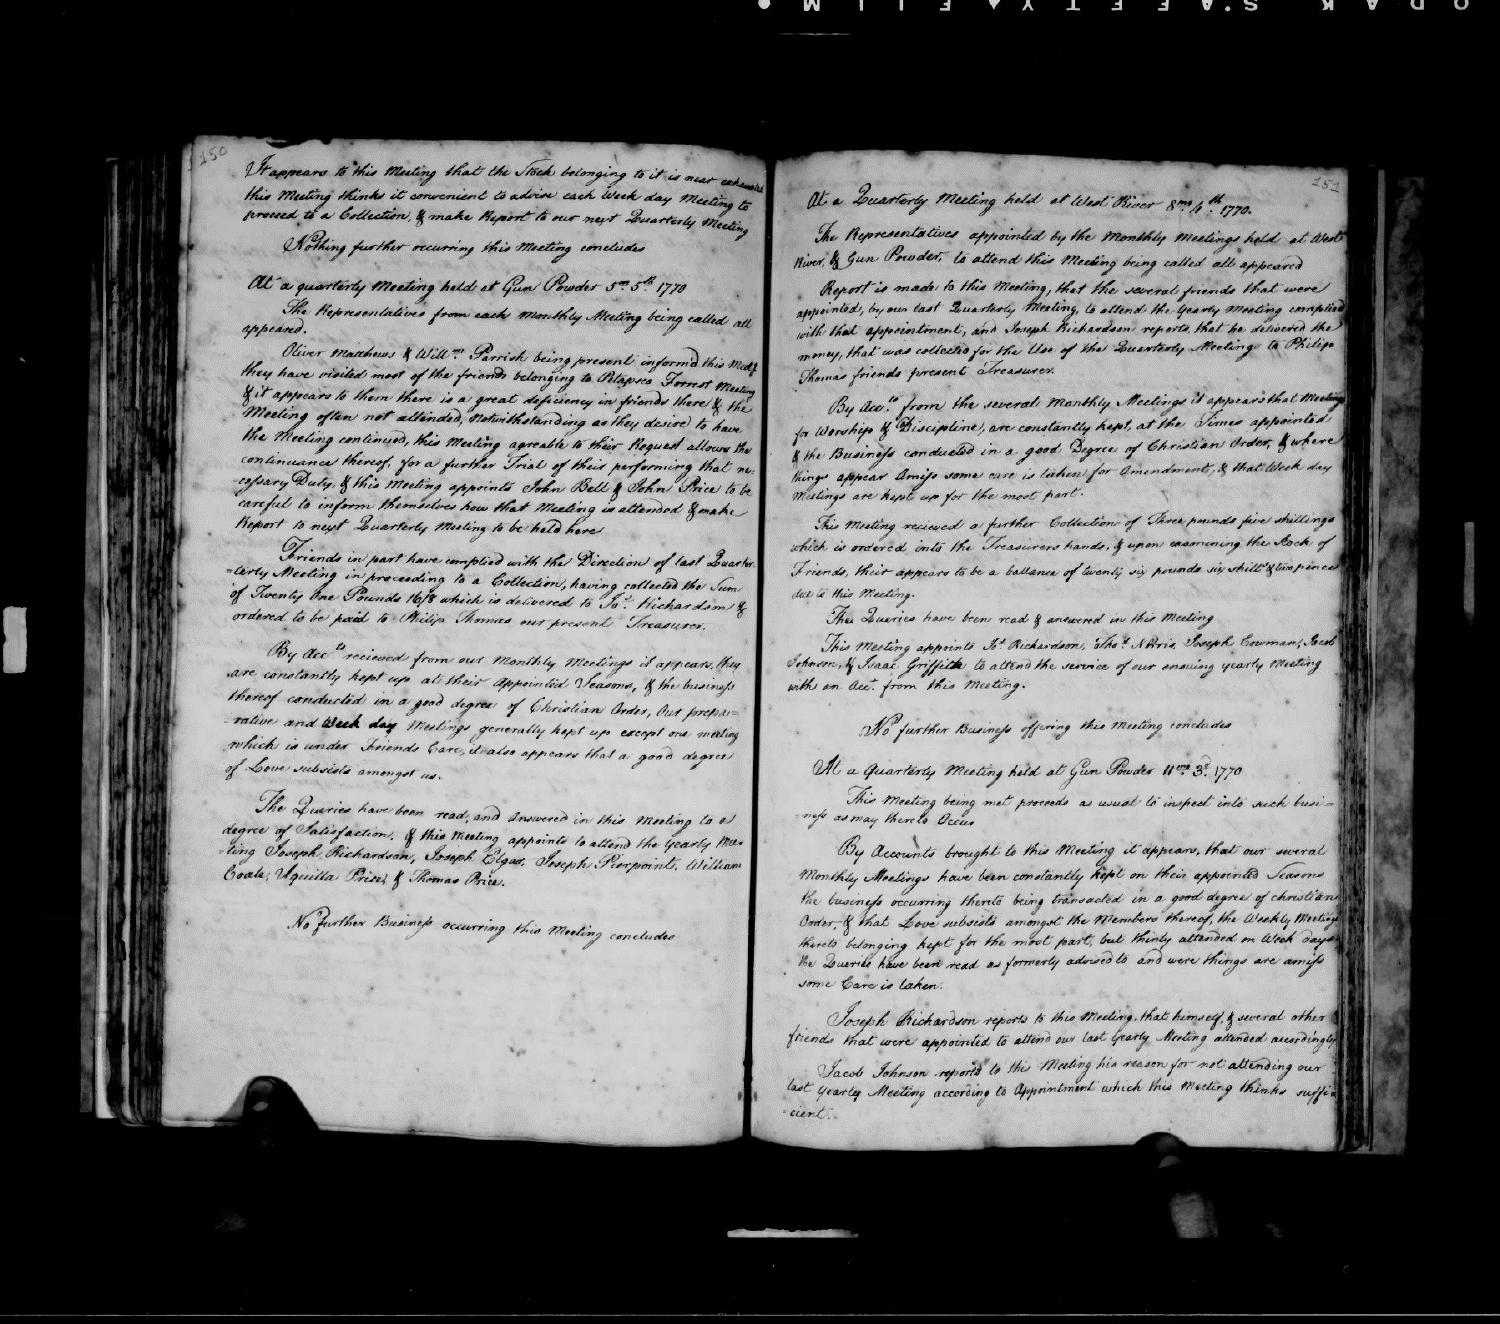 150
It appears to this Meeting that the Stock belonging to it is near exhausted
this Meeting thinks it convenient to advise each Week day Meeting to
proceed to a Collection, & make Report to our next Quarterly Meeting
Nothing further occurring this Meeting concludes
At a quarterly Meeting held at Gun Powder 5mo. 5th. 1770
The Representatives from each Monthly Meeting being called all
appeared.
Oliver Matthews & Willm. Parrish being present inform'd this Meetg
they have visited most of the friends belonging to Petapsco Forrest Meeting
& it appears to them there is a great deficiency in friends there & the
Meeting often not attended, Notwithstanding as they desire to have
the Meeting continued, this Meeting agreable to their Request allows the
continuance thereof, for a further Trial of their performing that ne:
cessary Duty, & this Meeting appoints John Bell & John Price to be
careful to inform themselves how that Meeting is attended & make
Report to next Quarterly Meeting to be held here
Friends in part have complied with the Direction of last Quarter
=terly Meeting in proceeding to a Collection, having collected the Sum
of Twenty One Pounds 16/8 which is delivered to Jos. Richardson &
ordered to be paid to Philip Thomas our present Treasurer.
By Accts recieved from our Monthly Meetings it appears, they
are constantly kept up at their Appointed Seasons, & the business
thereof conducted in a good degree of Christian Order, Our prepa=
=rative and Week day Meetings generally kept up except one meeting
which is under Friends Care, it also appears that a good degree
of Love subsists amongst us.
The Quaries have been read, and Answered in this Meeting to a
degree of Satisfaction. & this Meeting appoints to attend the Yearly Mee=
=ting Joseph Richardson, Joseph Elgar, Joseph Pierpoint, William
Coale, Aquilla Price, & Thomas Price.
No further Business occurring this Meeting concludes
151
At a Quarterly Meeting held at West River 8mo. 4th. 1770.
The Representatives appointed by the Monthly Meetings held at West
River, & Gun Powder, to attend this Meeting being called all appeared
Report is made to this Meeting, that the several friends that were
appointed, by our last Quarterly Meeting, to attend the Yearly Meeting complied
with that appointment, and Joseph Richardson reports, that he delivered the
money, that was collected for the Use of the Quarterly Meeting to Philip
Thomas friends present Treasurer.
By Acc.ts from the several Monthly Meetings it appears that Meetings
for Worship & Discipline, are constantly kept, at the Times appointed
& the Business conducted in a good Degree of Christian Order, & where
things appear Amiss some care is taken for Amendment, & that Week day
Meetings are kept up for the most part.
This Meeting recieved a further Collection of Three pounds five shillings
which is ordered into the Treasurers hands, & upon examining the Stock of
Friends, their appears to be a ballance of twenty six pounds six shills & two pence
due to this Meeting.
The Queries have been read & answered in this Meeting
This Meeting appoints Js. Richardson, Thos. Norris, Joseph Cowman, Jacob
Johnson, & Isaac Griffith to attend the service of our ensuing yearly Meeting
with an Acct. from this Meeting.
No further Business offering this Meeting concludes
At a Quarterly Meeting held at Gun Powder 11mo. 3d. 1770
This Meeting being met proceeds as usual to inspect into such busi=
=ness as may thereto Occur
By Accounts brought to this Meeting it appears, that our several
Monthly Meetings have been constantly kept on their appointed Seasons
the business occurring thereto being transacted in a good degree of christian
Order, & that Love subsists amongst the Members thereof, the Weekly Meetings
thereto belonging kept for the most part, but thinly attended on Week days
the Queries have been read as formerly advised to and were things are amiss
some Care is taken.
Joseph Richardson reports to this Meeting, that himself, & several other
friends that were appointed to attend our last Yearly Meeting attended accordingly
Jacob Johnson reports to this Meeting his reason for not attending our
last Yearly Meeting according to Appointment which this Meeting thinks suffi=
=cient.